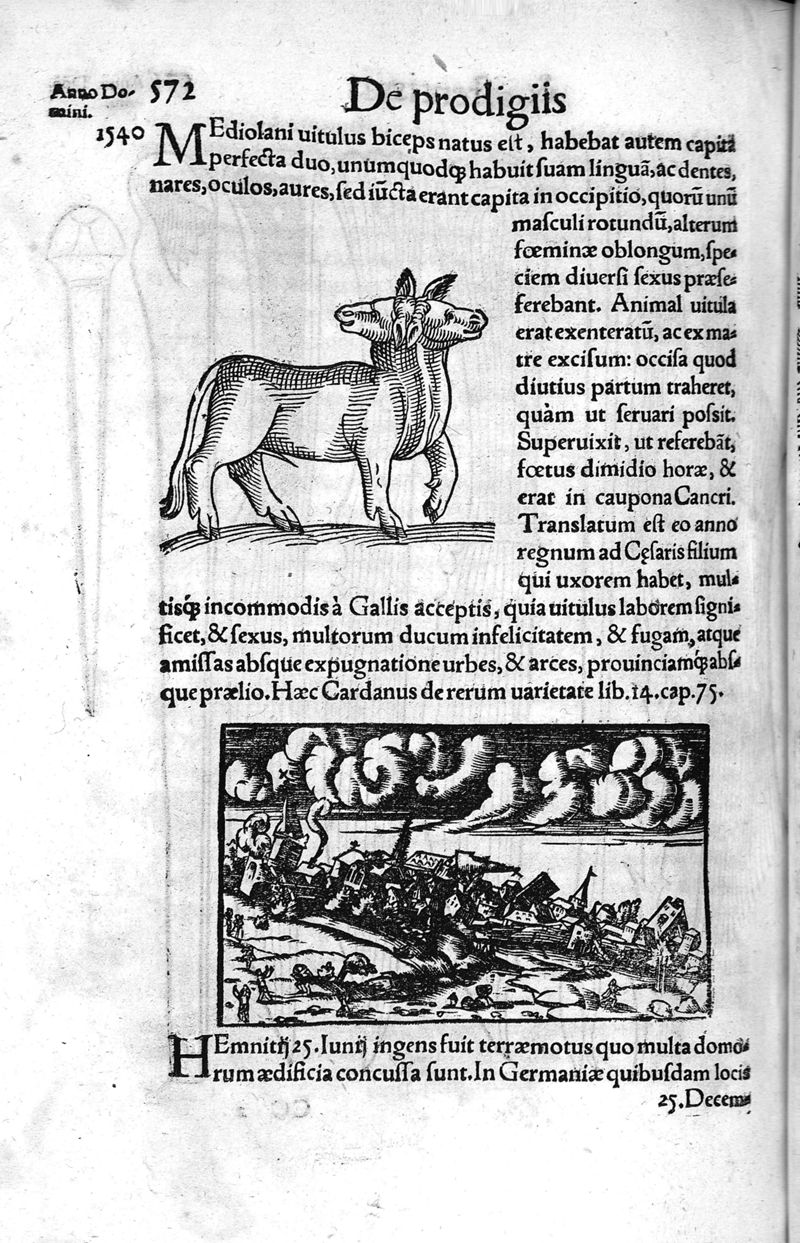 Anno Do-
mini.
572
De prodigiis
1540
MEdiolani uitulus biceps natus est, habebat autem capita
perfecta duo, unumquodꝗ habuit suam linguã, ac dentes,
nares, oculos, aures, sed iũcta erant capita in occipitio, quorũ unũ
masculi rotundũ, alterum
fœminæ oblongum, spe-
ciem diuersi sexus præse-
ferebant. Animal uitula
erat exenteratũ, ac ex ma-
tre excisum: occisa quod
diutius partum traheret,
quàm ut seruari possit.
Superuixit, ut referebãt,
fœtus dimidio horæ, &
erat in caupona Cancri.
Translatum est eo anno
regnum ad Cęsaris filium
qui uxorem habet, mul-
tisꝗ incommodis à Gallis acceptis, quia uitulus laborem signi-
ficet, & sexus, multorum ducum infelicitatem, & fugam, atque
amissas absque expugnatione urbes, & arces, prouinciamꝗ abs-
que prælio. Hæc Cardanus de rerum uarietate lib.14.cap.75.
HEmnitij 25. Iunij ingens fuit terræmotus quo multa domo-
rum ædificia concussa sunt. In Germaniæ quibusdam locis
25. Decem-